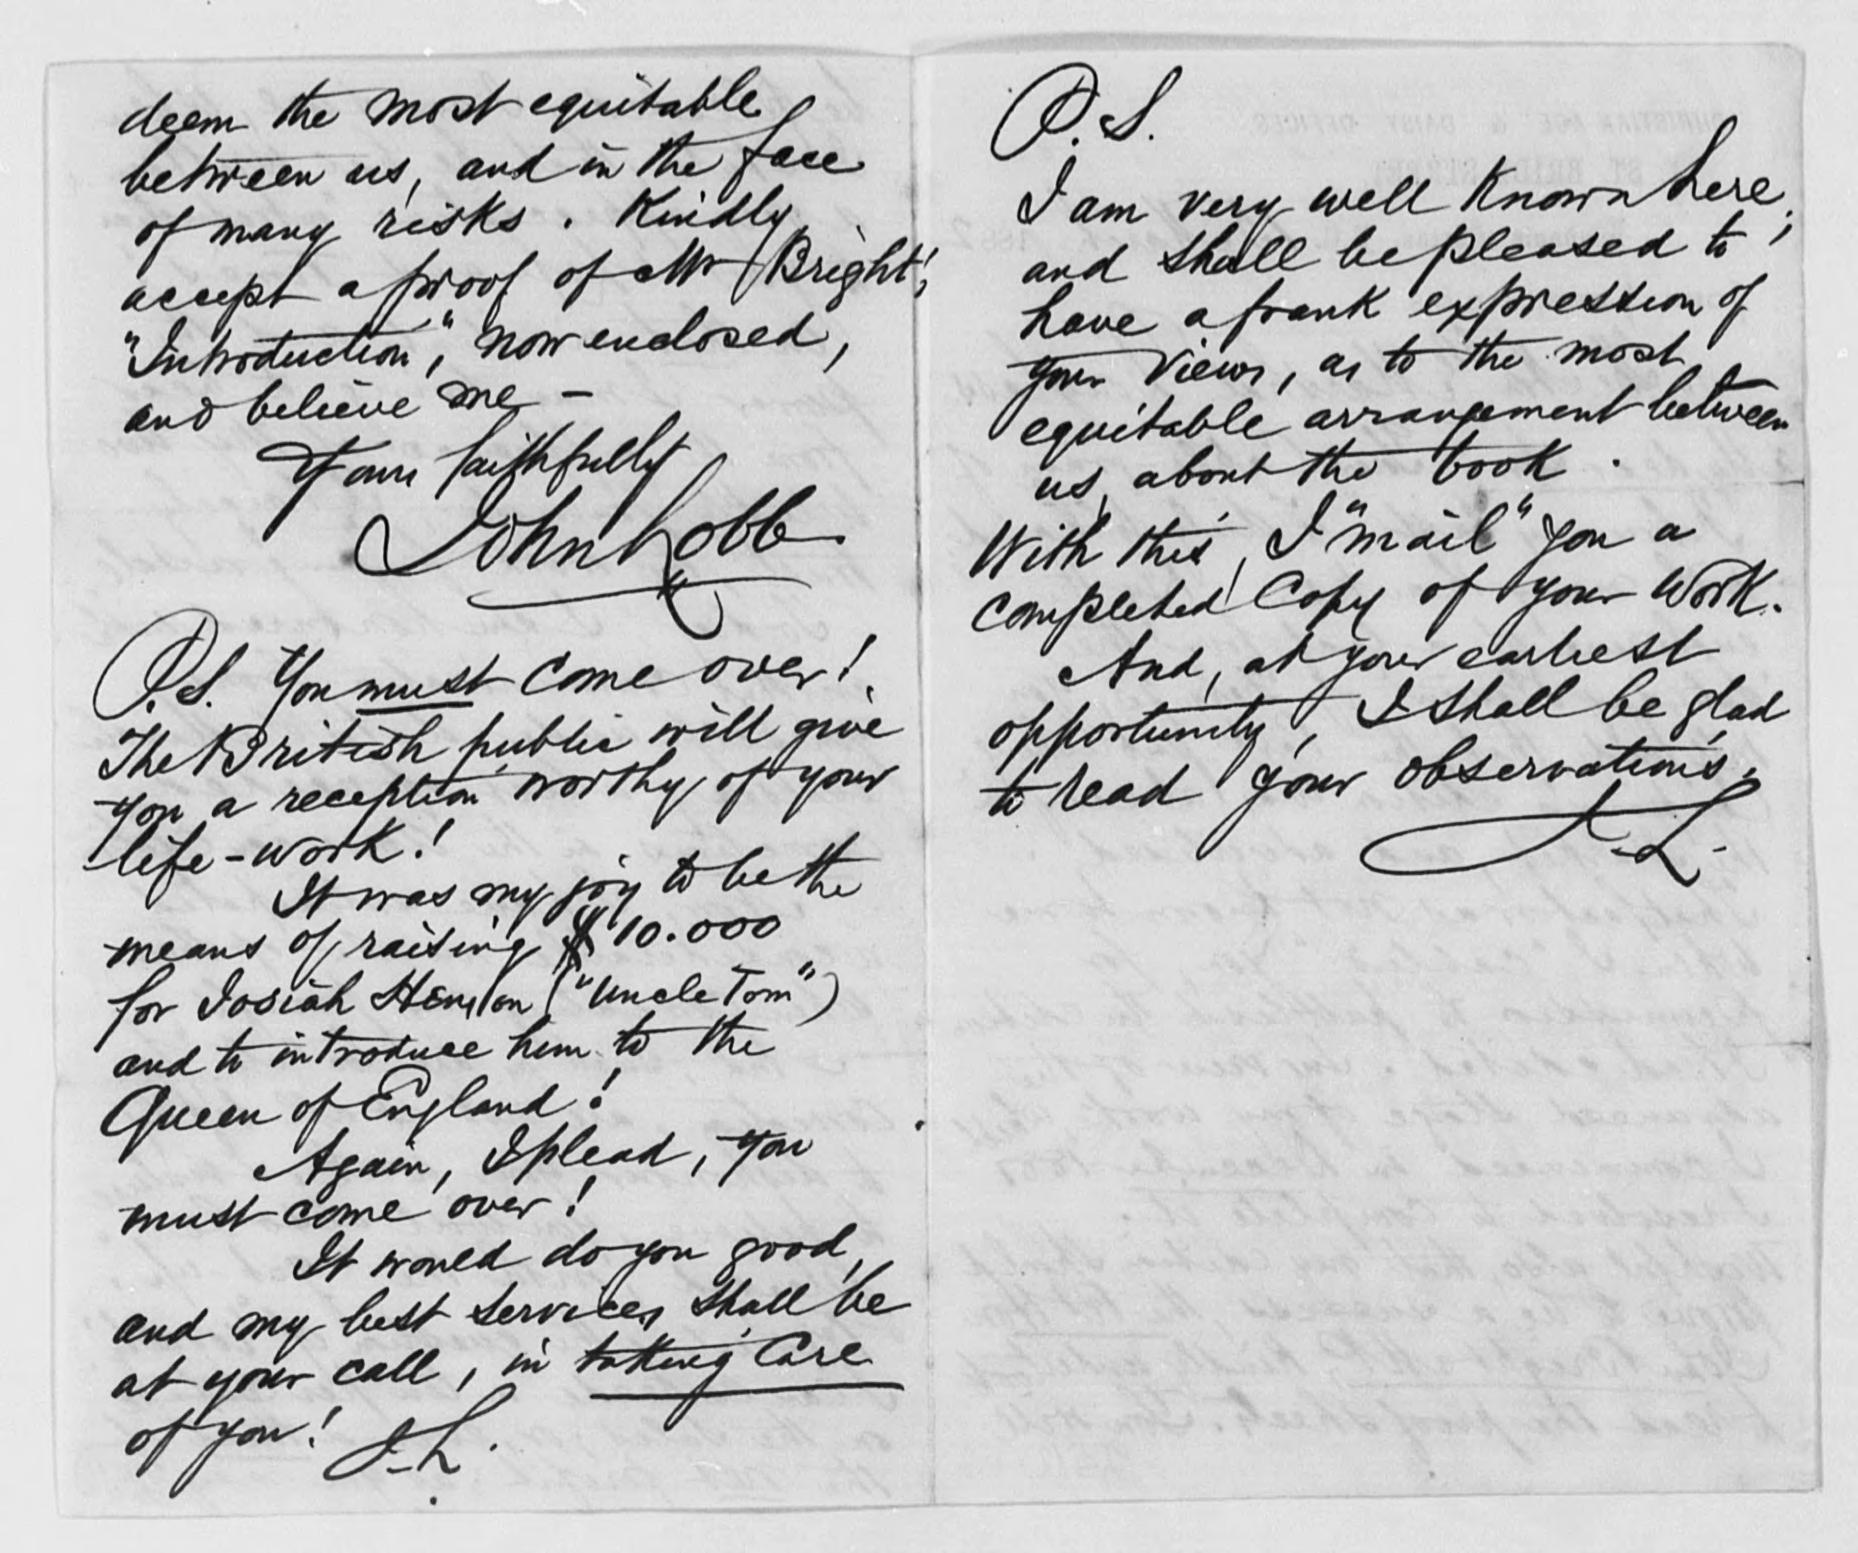 deem the most equitable
between us, and in the face
of many risks. Kindly
accept a proof of Mr Bright's
"Introduction", now enclosed,
and believe me –
Yours faithfully
John Lobb.
P.S. You must come over!
The British public will give
you a reception worthy of your
life-work!
It was my joy to be the
means of raising $10.000
for Josiah Henson ("Uncle Tom")
and to introduce him to the
Queen of England!
Again, I plead, you
must come over!
It would do you good,
and my best services shall be
at your call, in taking care
of you! J.L.
P.S.
I am very well known here,
and shall be pleased to
have a frank expression of
your views, as to the most
equitable arrangement between
us, about the book.
With this, I "mail" you a
completed Copy of your work.
And, at your earliest
opportunity, I shall be glad
to read your observations.
J.L.